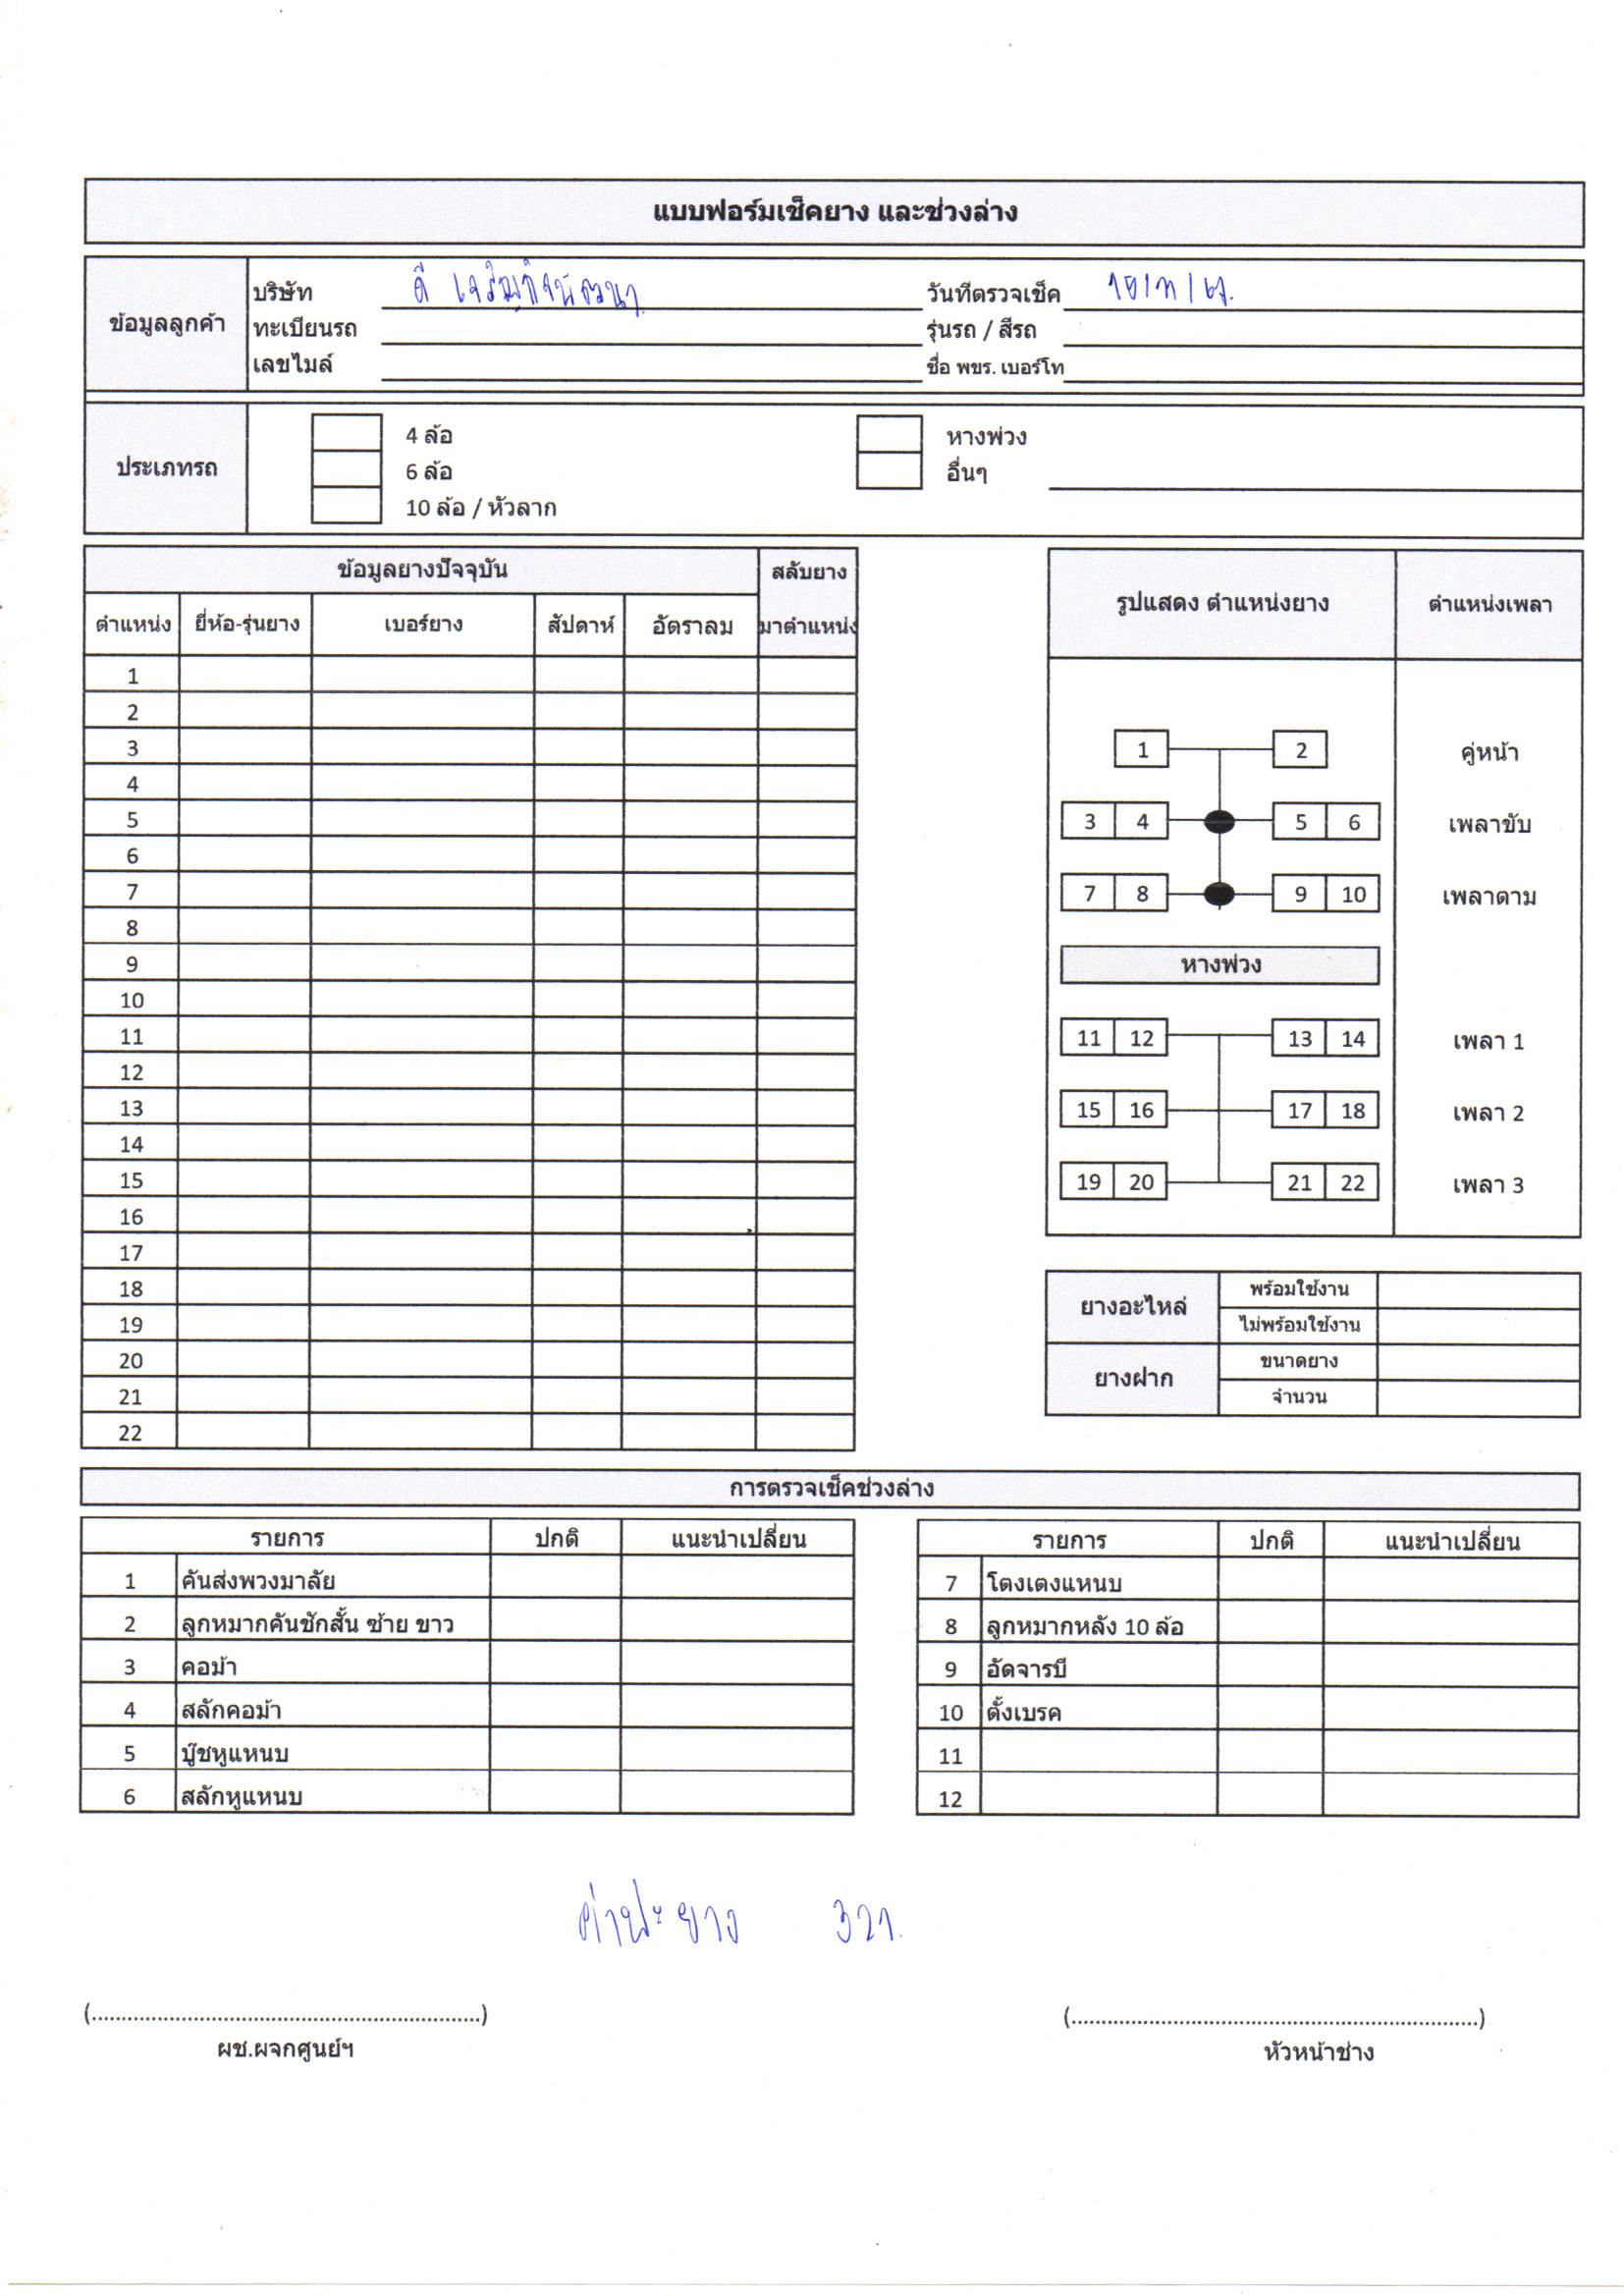 แบบฟอร์มเช็คยาง และช่วงล่าง
ข้อมูลลูกค้า
บริษัท ดี เจริญกิจพัฒนา วันที่ตรวจเช็ค
ทะเบียนรถ รุ่นรถ / สีรถ
เลขไมล์ ชื่อ พขร. เบอร์โท
ประเภทรถ
4 ล้อ หางพ่วง
6 ล้อ อื่นๆ
10 ล้อ / หัวลาก
ข้อมูลยางปัจจุบัน สลับยาง
ตำแหน่ง ยี่ห้อ-รุ่นยาง เบอร์ยาง สัปดาห์ อัตราลม มาตำแหน่ง
1
2
3
4
5
6
7
8
9
10
11
12
13
14
15
16
17
18
19
20
21
22
รูปแสดง ตำแหน่งยาง ตำแหน่งเพลา
1 2 คู่หน้า
3 4 5 6 เพลาขับ
7 8 9 10 เพลาตาม
หางพ่วง
11 12 13 14 เพลา 1
15 16 17 18 เพลา 2
19 20 21 22 เพลา 3
ยางอะไหล่ พร้อมใช้งาน
ไม่พร้อมใช้งาน
ยางฝาก ขนาดยาง
จำนวน
การตรวจเช็คช่วงล่าง
รายการ ปกติ แนะนำเปลี่ยน
1 คันส่งพวงมาลัย
2 ลูกหมากคันชักสั้น ซ้าย ขาว
3 คอม้า
4 สลักคอม้า
5 บู๊ชหูแหนบ
6 สลักหูแหนบ
รายการ ปกติ แนะนำเปลี่ยน
7 โตงเตงแหนบ
8 ลูกหมากหลัง 10 ล้อ
9 อัดจารบี
10 ตั้งเบรค
11
12
ค่าปะยาง
(.................................................................) (.....................................................................)
ผช.ผจกศูนย์ฯ หัวหน้าช่าง